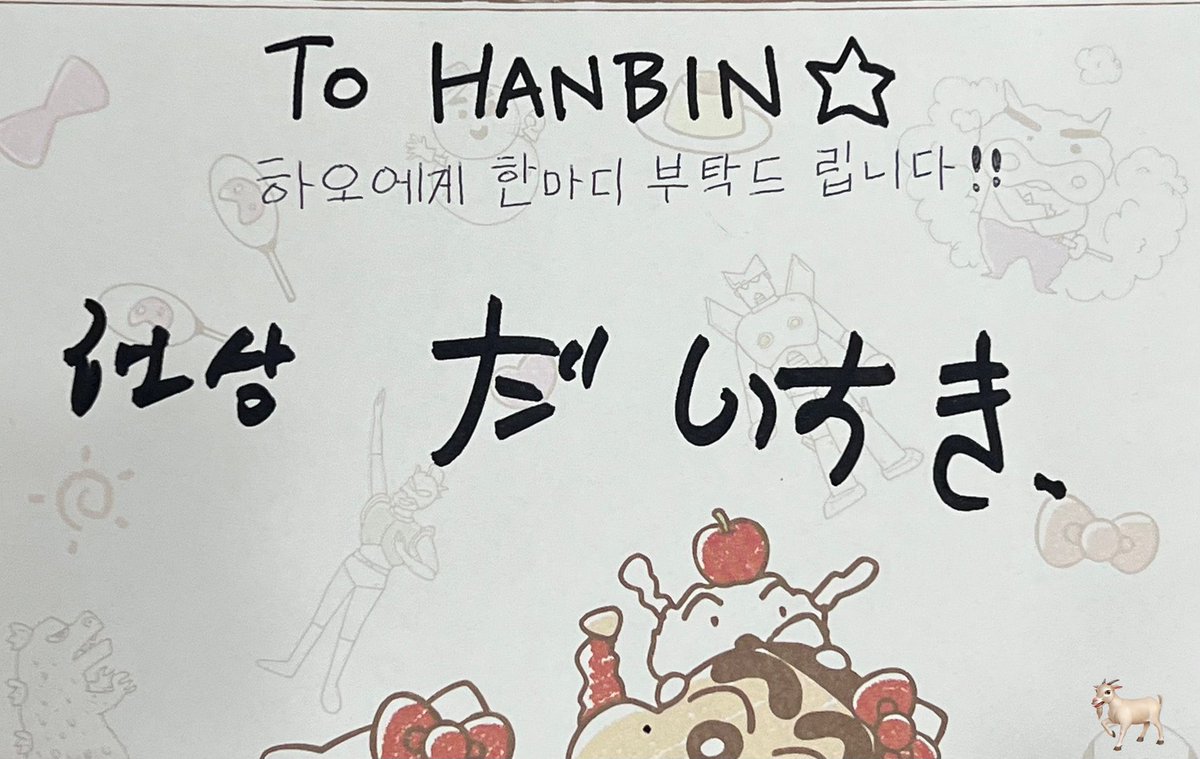 To HANBIN☆
하오에게 한마디 부탁드 립니다!!
だいすき、